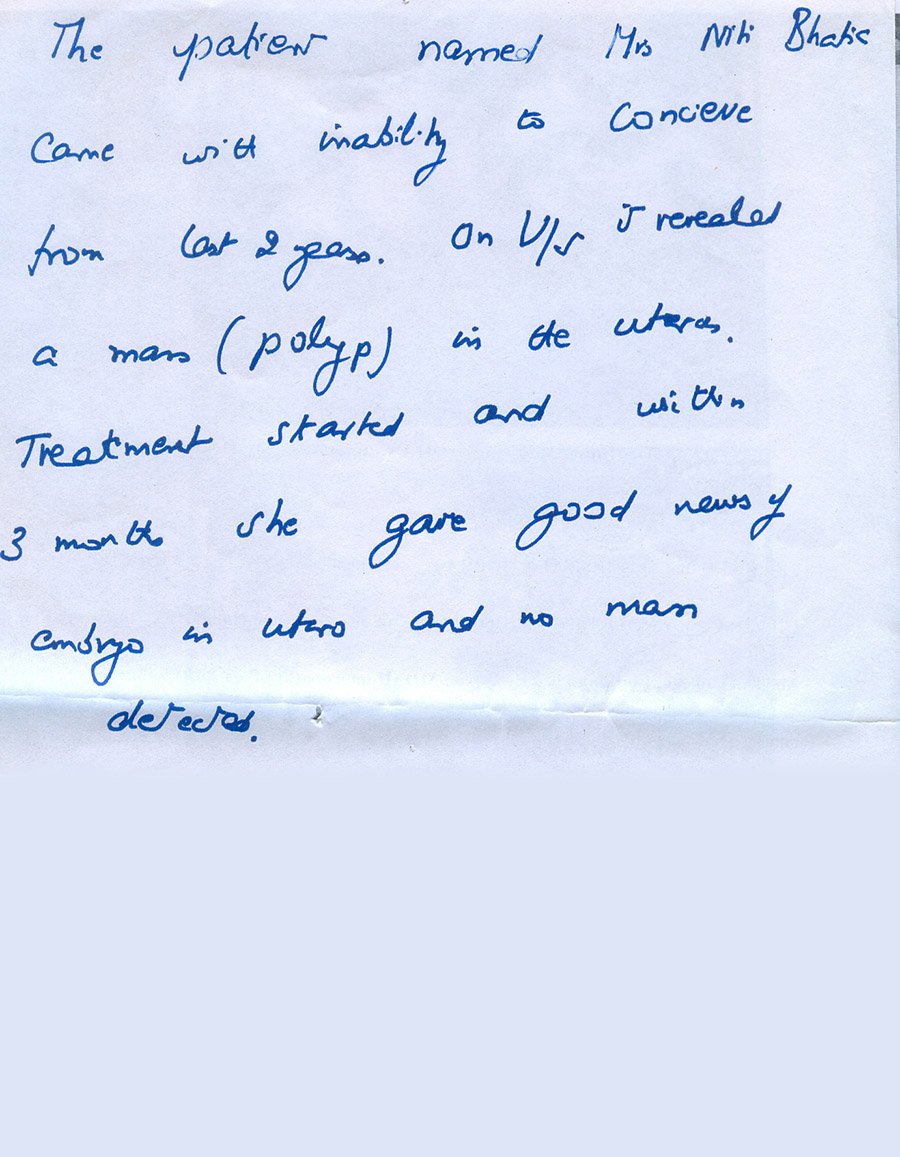 The patient named Mrs Niti Bhatia
Came with inability to Concieve
from last 2 years. On U/S it revealed
a mass (polyp) in the uterus.
Treatment started and within
3 months she gave good news of
embryo in utero and no mass
detected.